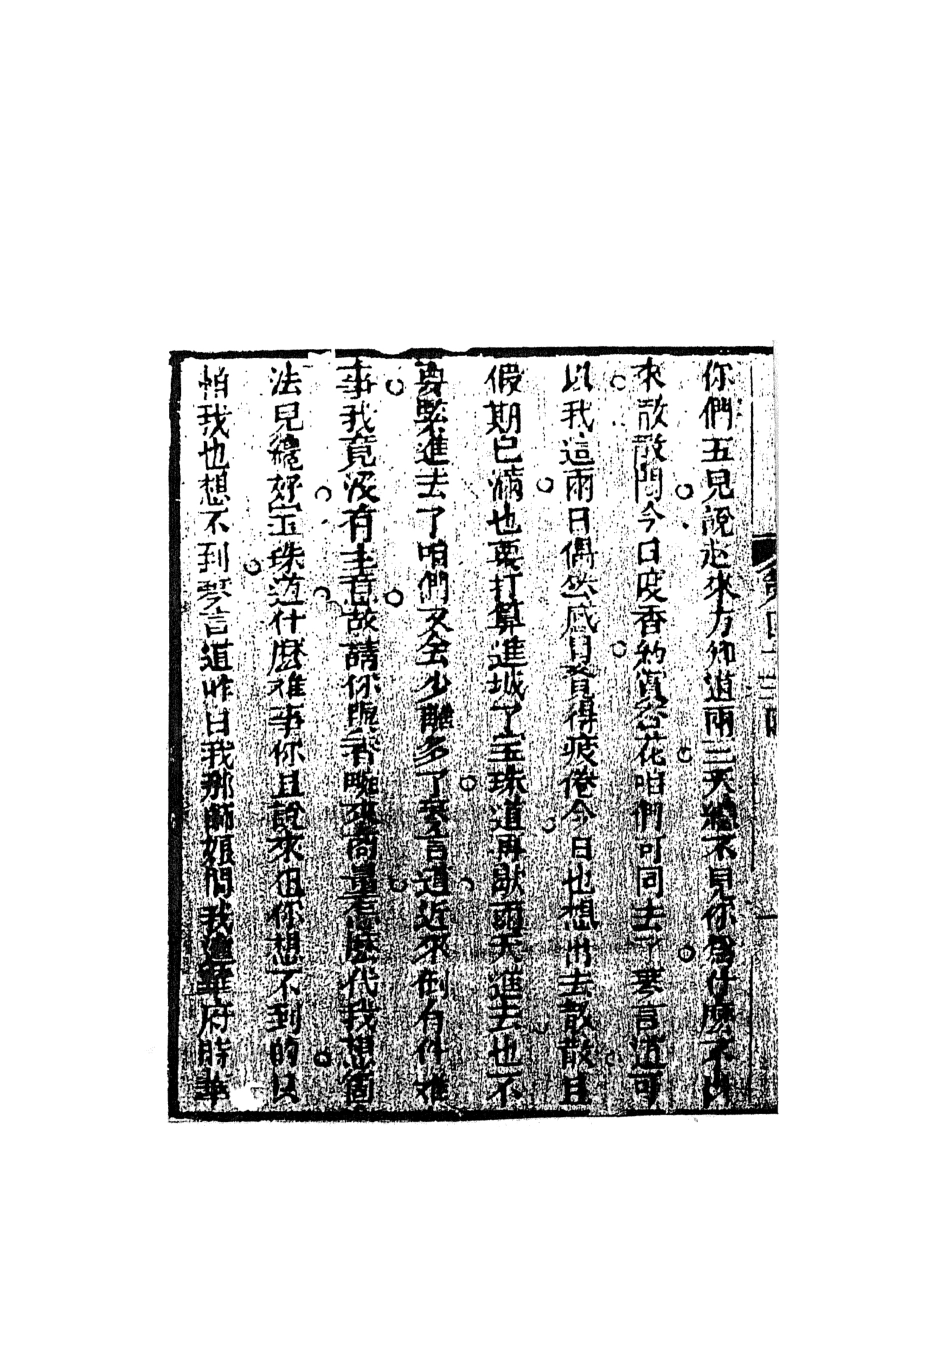 第四十三回
你們五兄說起來方知道兩三天總不見你爲什麽不出
來散散悶今日度香約賞荷花咱們可同去了琴言道可
以我這兩日偶然感冒覺得疲倦今日也想出去散散且
假期已滿也要打算進城了宝珠道再歇兩天進去也不
要緊進去了咱們又会少離多了琴言道近來倒有件难
事我竟没有主意故請你與香畹來商量怎麽代我想箇
法兒纔好宝珠道什麽难事你且說來但你想不到的只
怕我也想不到琴言道昨日我那師娘問我進華府時華